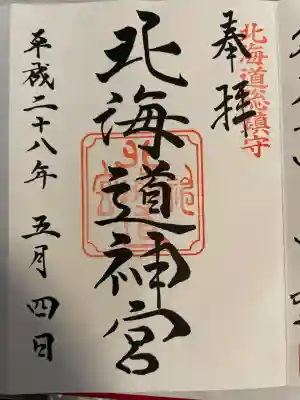 北海道総鎮守
奉拝
北海道神宮
平成二十八年 五月 四日